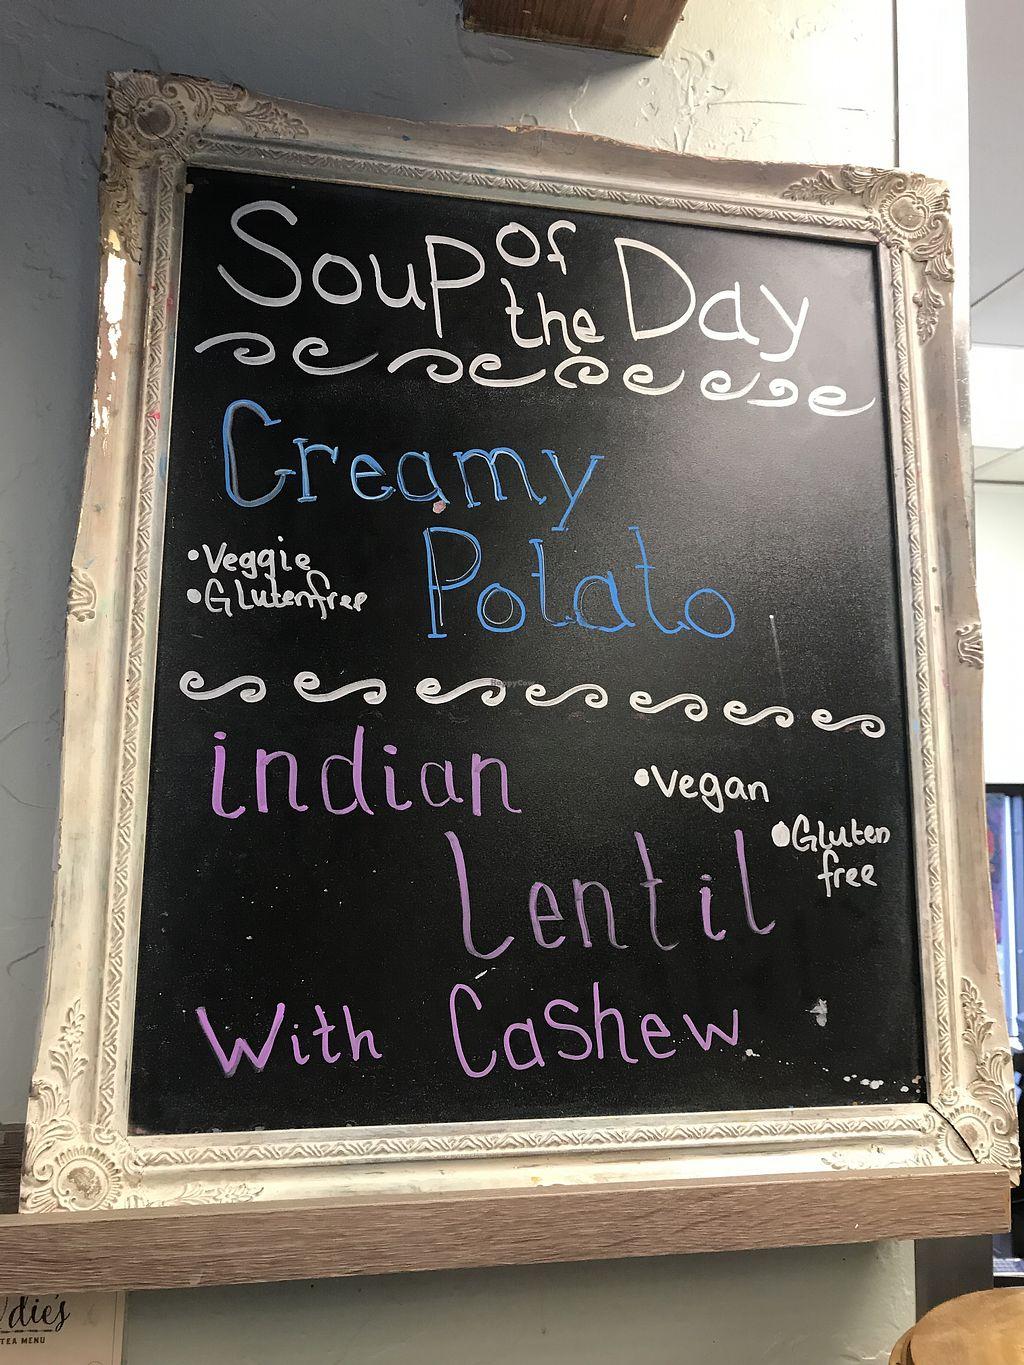 Soup of the Day
Creamy
Potato
•Veggie
•Glutenfree
HappyCow
indian
Lentil
•Vegan
•Gluten
free
With Cashew
die's
TEA MENU